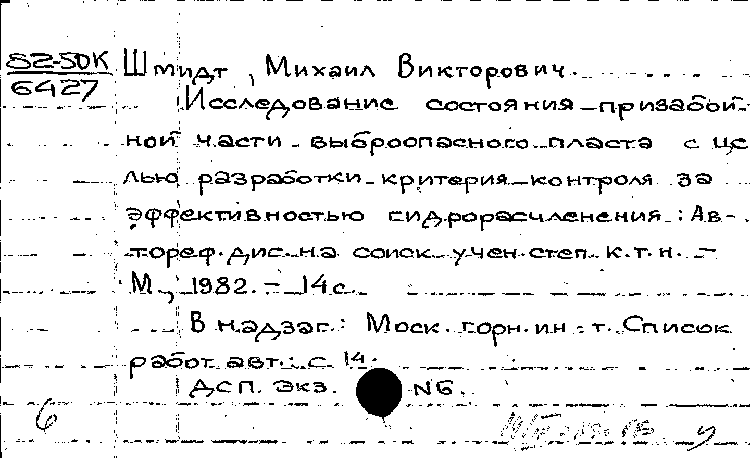 82-50К
6427
Шмидт, Михаил Викторович.
Исследование состояния призабой-
ной части выброопасного пласта с це
лью разработки критерия контроля за
эффективностью гидрорасчленения: Ав-
тореф. дис. на соиск. учен. степ. к.т.н. –
М., 1982. – 14 с.
В надзаг.: Моск. горн. ин-т. Список
работ авт.: с. 14.
ДСП. Экз. № Б.
6